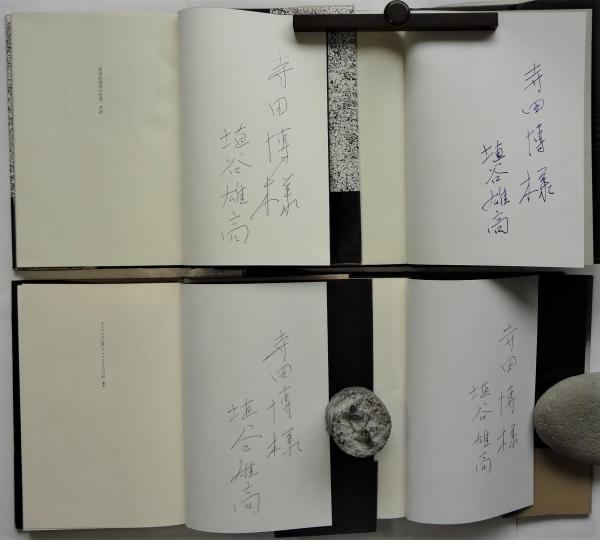 寺田博様
埴谷雄高
寺田博様
埴谷雄高
寺田博様
埴谷雄高
寺田博様
埴谷雄高